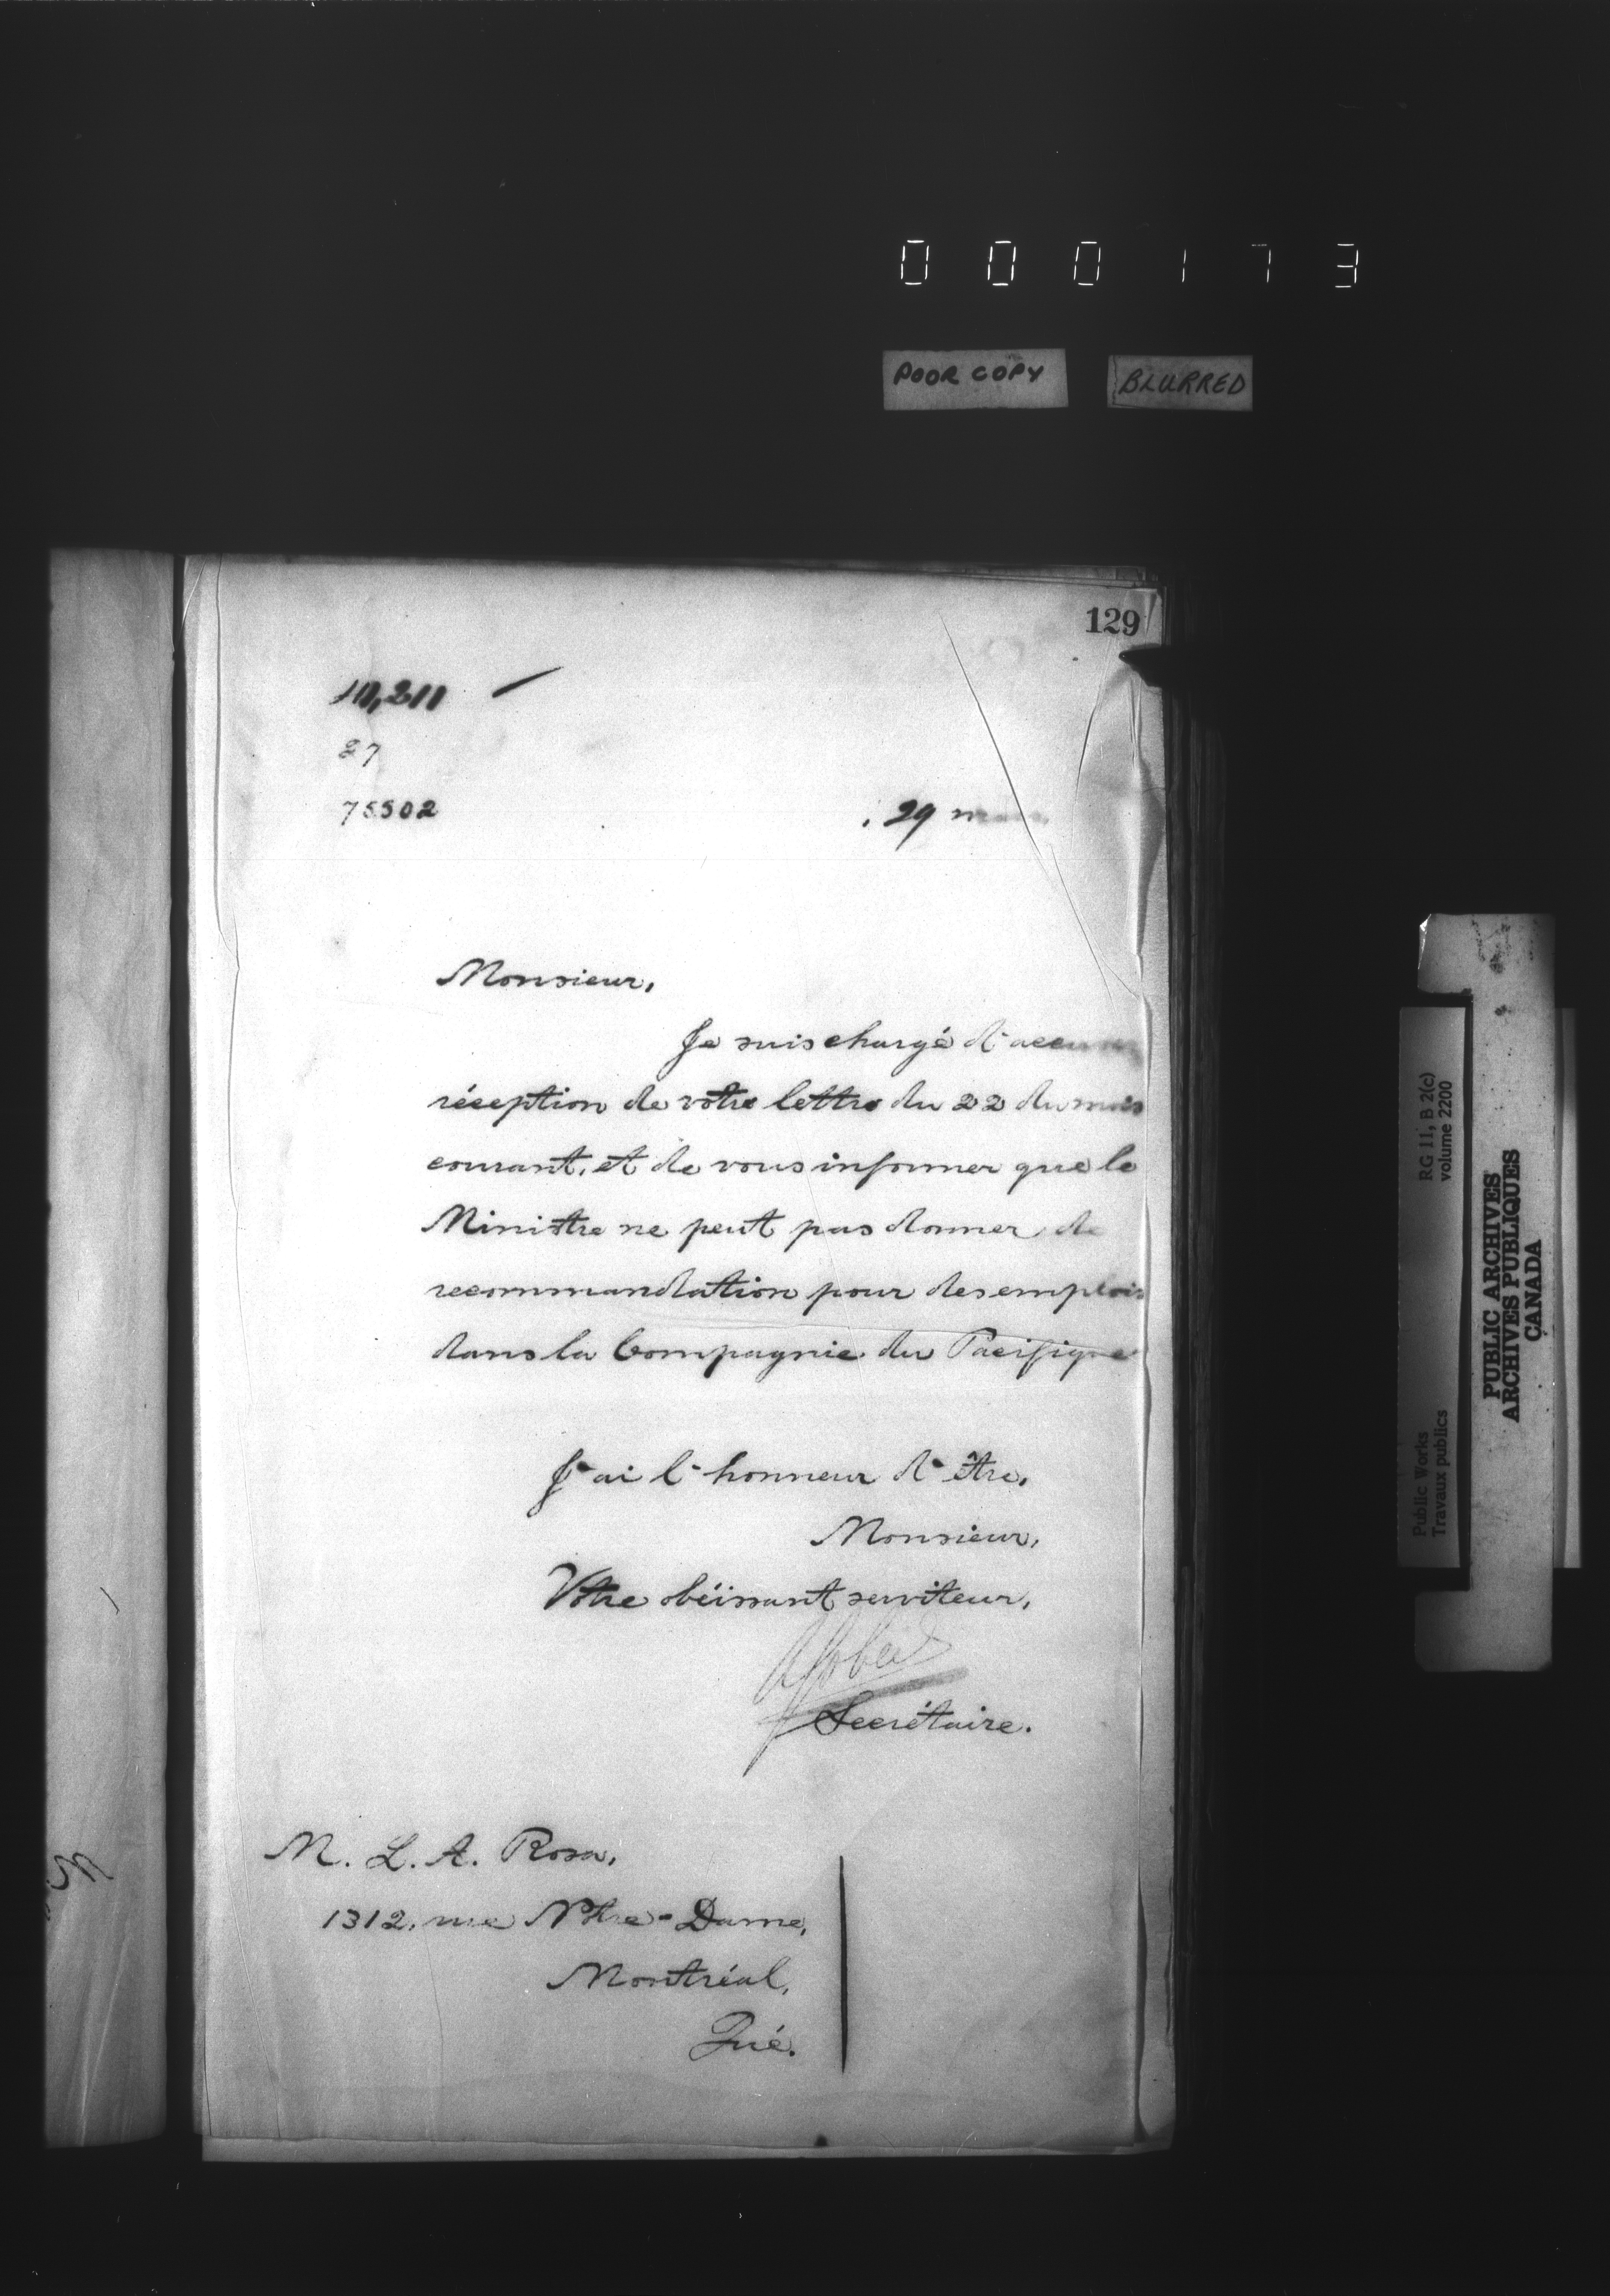 000173
POOR COPY BLURRED
129
27
75502
29
Monsieur,
Je suis chargé d'accuser
réception de votre lettre du 22 du mois
courant, et de vous informer que le
Ministre ne peut pas donner de
recommandation pour des emplois
dans la Compagnie du Pacifique
J'ai l'honneur d'être,
Monsieur,
Votre obéissant serviteur,
Secrétaire.
M. L. A. Rosa,
1312, rue Notre-Dame,
Montréal,
Qué.
Public Works
Travaux publics
RG 11, B 2(c)
volume 2200
PUBLIC ARCHIVES
ARCHIVES PUBLIQUES
CANADA